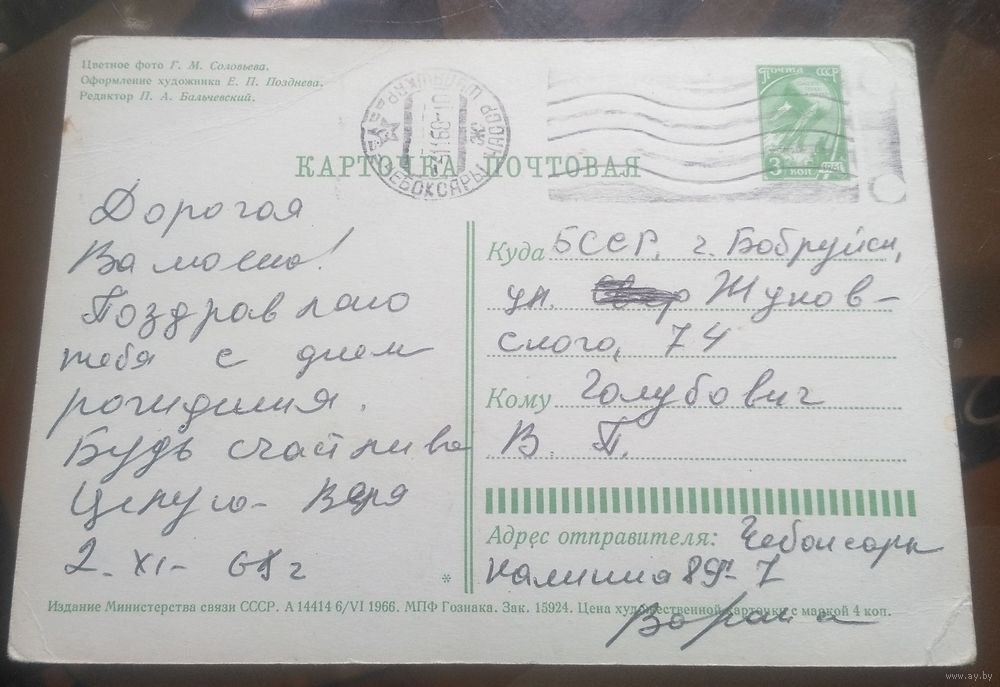 Цветное фото Г. М. Соловьева.
Оформление художника Е. П. Позднева.
Редактор П. А. Бальчевский.
ЧЕБОКСАРЫ
ПОЧТА СССР
1961
3 КОП
КАРТОЧКА ПОЧТОВАЯ
Дорогая
Поздравляю
тебя с днем
рождения.
Будь счастлива
Целую - Варя
2. XI - 68 г
Куда БССР, г. Бобруйск,
ул. Жуков-
ского, 74
Кому Голубович
В. П.
Адрес отправителя: Чебоксары
Калинина 89
*
Издание Министерства связи СССР. А 14414 6/VI 1966. МПФ Гознака. Зак. 15924. Цена художественной карточки с маркой 4 коп.
www.ay.by